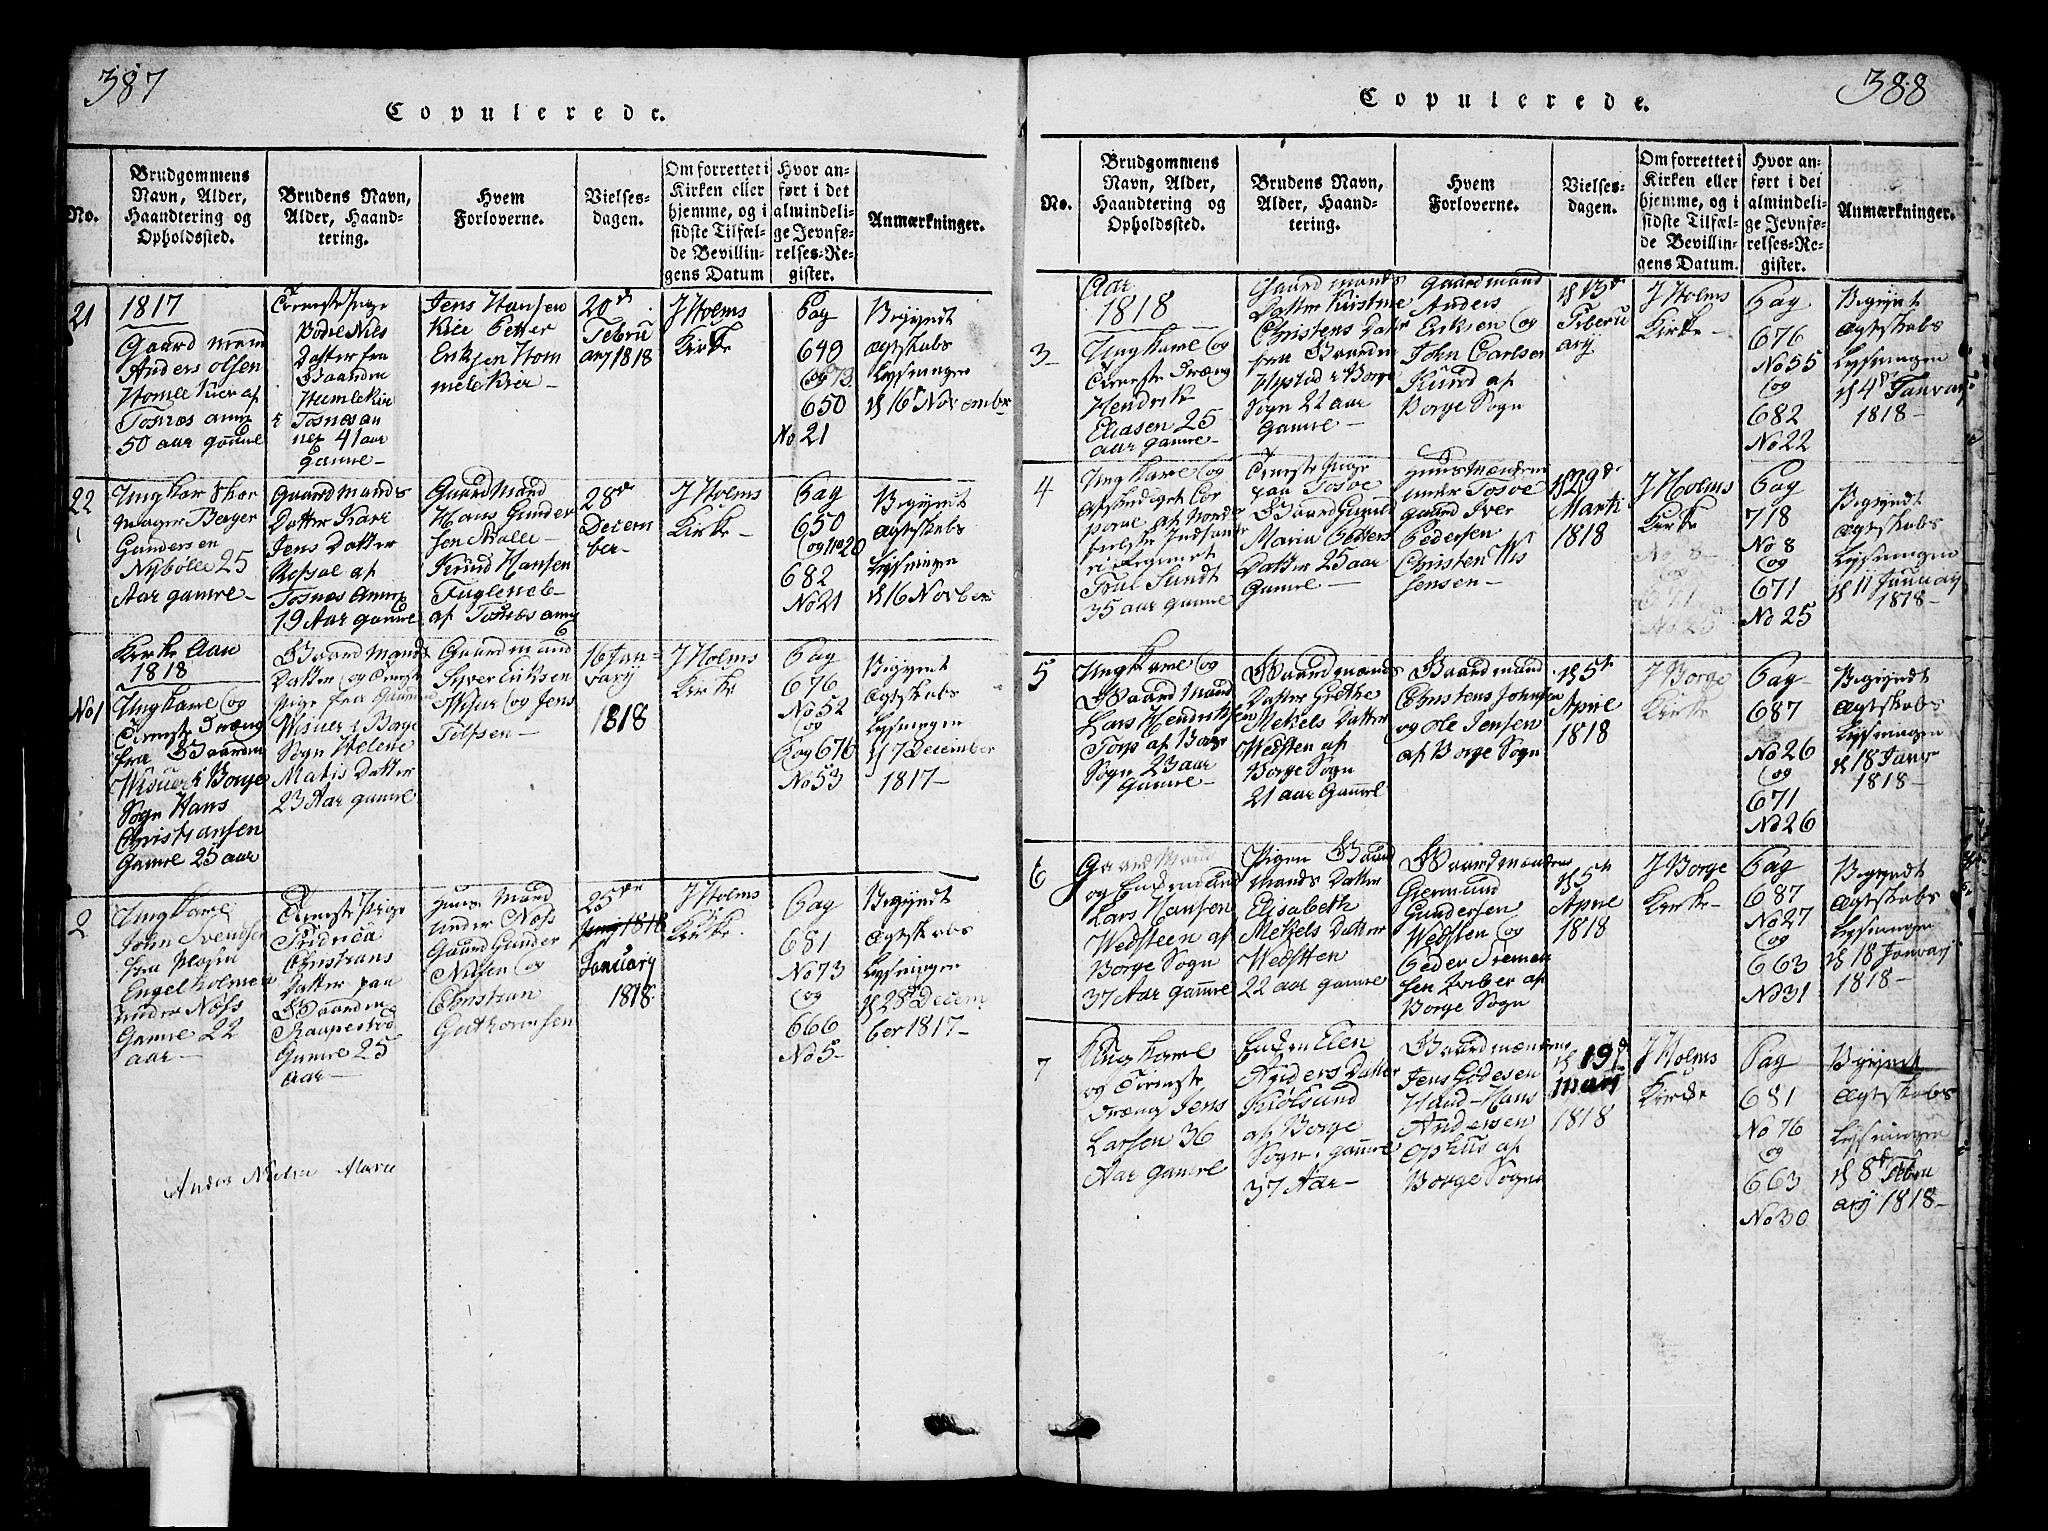 387
Copulerede.
No.
Brudgommens
Navn, Alder,
Haandtering og
Opholdssted.
Brudens Navn,
Alder, Haand-
tering.
Hvem
Forloverne.
Vielses-
dagen.
Om forrettet i
Kirken eller
hjemme, og i
sidste Tilfæl-
de Bevillin-
gens Datum
Hvor an-
ført i det
almindeli-
ge Jevnfø-
relses-Re-
gister.
Anmærkninger.
21
1817
Gaardmand
Anders Olsen
Homlekiær af
50 aar gamle
Tieneste Pige
Bodil Niels
Datter fra
Gaarden
Humlekiær
41 aar
Gamle
Jens Hansen
Kiær Petter
Eriksen Hom
melekier
20de
Februar
ary 1818
I Holms
Kirke
Pag
649
og 73
650
No 21
Begyndt
Ægteskabs
Lysningen
d 16 November
22
Gundersen
Nybolle 25
Aar gamle
Gaardmands
Datter Kari
Jens Datter
Rossal af
19 Aar gamle
Gaardmand
Hans Gunder
sen Kolle
Knud Hansen
Fugleneb
28de
Decem
ber
I Holms
Kirke
Pag
650
og No 20
682
No 21
Begyndt
Ægteskabs
Lysningen
d 16 Novber
Kirke Aar
1818
No 1
Ungkarl og
Tieneste Dræng
fra Gaarden
Sogn Hans
Christiansen
Gamle 25 aar
Gaardmands
Datter og Tieneste
Pige fra Gaarden
Sogn Helene
Matis Datter
23 Aar gamle
Gaardmand
Syver Eriksen
og Jens
Tolfsen
16 Jan-
uary
1818
I Holms
Kirke
Pag
676
No 52
og
Pag 676
No 53
Begyndt
Ægteskabs
Lysningen
d 7 December
1817
2
Ungkarl
John Svendsen
fra Pladsen
Engelholmen
under Noss
Gamle 22
aar
Tieneste Pige
Fridrica
Christians
Datter paa
Gaarden
Raapestad
Gamle 25
aar
Huus Mand
under Noss
Gaard Gunder
Nilsen og
Christian
Guthormsen
25de
January
1818
I Holms
Kirke
Pag
681
No 73
og
666
No 5
Begyndt
Ægteskabs
Lysninger
d 28de Decem
ber 1817
388
Copulerede.
No.
Brudgommens
Navn, Alder,
Haandtering og
Opholdssted.
Brudens Navn,
Alder, Haand-
tering.
Hvem
Forloverne.
Vielses-
dagen.
Om forrettet i
Kirken eller
hjemme, og i
sidste Tilfæl-
de Bevillin-
gens Datum.
Hvor an-
ført i det
almindeli-
ge Jevnfø-
relses-Re-
gister.
Anmærkninger.
Aar
1818
3
Ungkarl og
Tieneste Dræng
Hendrik
Eliasen 25
aar gamle
Gaardmands
Datter Kristine
Christens Datter
fra Gaarden
Hystad i Borge
Sogn 22 aar
Gamle
Gaardmand
Anders
Eriksen og
John Carlsen
Kiund af
Borge Sogn
d 13de
Februar
ary
I Holms
Kirke
Pag
676
No 55
og
682
No 22
Begyndt
Ægteskabs
Lysningen
d 4de January
1818
4
Ungkarl og
35 aar gamle
Tieneste Pige
paa
Gaard
Maria Petters
Datter 25 aar
Gamle
Huusmændene
under
gaard Iver
Pedersen
Christen Nis
sensen
d 29de
Marti
1818
I Holms
Kirke
Pag
718
No 8
og
671
No 25
Begyndt
Ægteskabs
Lysningen
d 11 January
1818
5
Ungkarl og
Gaard Mand
Lars Hendriksen
Torp af Borge
Sogn 23 aar
Gamle
Gaardmands
Datter Grethe
Mekels Datter
Wedsten af
Borge Sogn
21 aar Gamle
Gaardmand
Christens Johnsen
og Ole Jensen
af Borge Sogn
d 5te
April
1818
I Borge
Kirke
Pag
687
No 26
og
671
No 26
Begyndt
Ægteskabs
Lysningen
d 18 Janv
1818
6
Gaard Mand
og Enkemand
Lars Hansen
Wedsteen af
Borge Sogn
37 Aar gamle
Pigen Gaard
mands Datter
Elisabeth
Mekels Datter
Wedsten
22 aar gamle
Gaardmændene
Germund
Gundersen
Wedsten og
Peder Siemen
sen af
Borge Sogn
d 5te
April
1818
I Borge
Kirke
Pag
687
No 27
og
663
No 31
Begyndt
Ægteskabs
Lysningen
d 18 January
1818
7
Ungkarl
og Tieneste
Dræng Jens
Larsen 36
Aar gamle
Enken Elen
Anders Datter
Kiølsund
af Borge
Sogn gamle
37 Aar
Gaardmændene
Jens Godesen
Haud Hans
Andersen
Ophus af
Borge Sogn
d 19de
Marj
1818
I Holms
Kirke
Pag
681
No 76
og
663
No 30
Begyndt
Ægteskabs
Lysningen
d 8de Febru
ary 1818